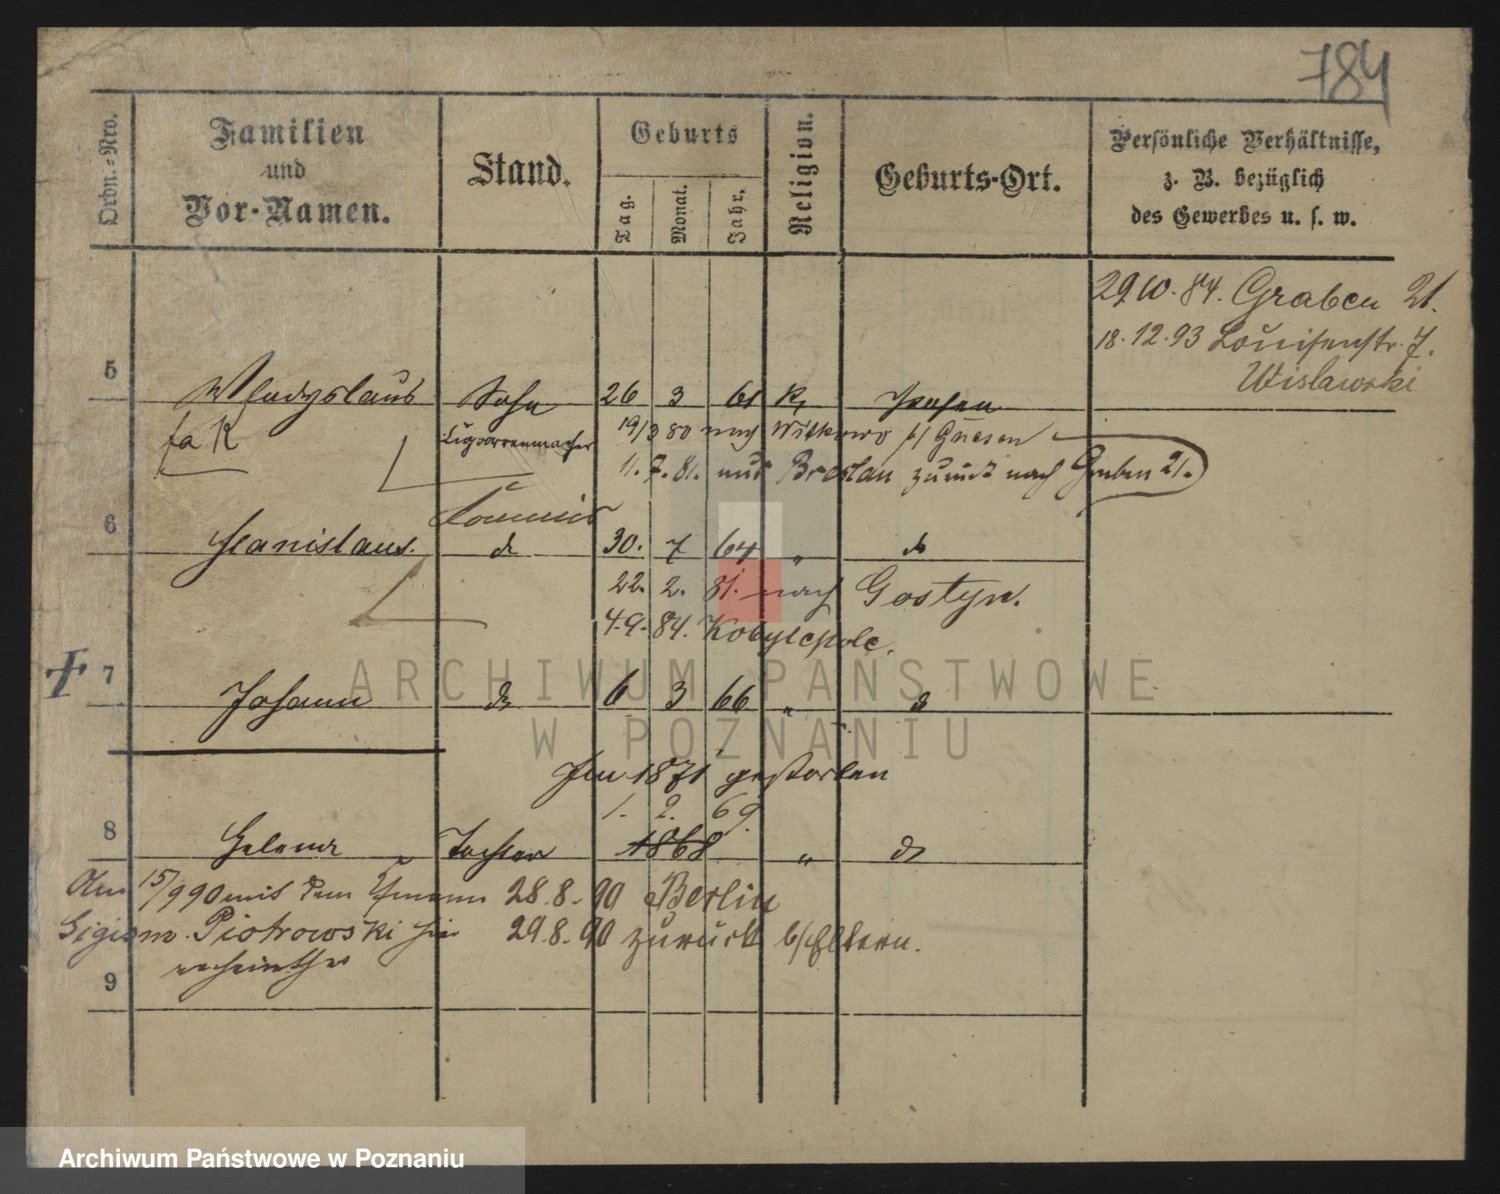 784
Ordn.=Nro.
Familien
und
Vor-Namen.
Stand.
Geburts
Tag.
Monat.
Jahr.
Religion.
Geburts-Ort.
Persönliche Verhältnisse,
z. B. bezüglich
des Gewerbes u. s. w.
29 10. 84. Graben 21.
18. 12. 93 Louisenstr. 7.
Wislawski
5 Wladyslaus Sohn 26 3 61 K, Posen
fa K Cigarrenmacher 19/3 80 nach Witkowo b/ Gnesen
11. 7. 81. aus Breslau zurück nach Graben 21.
Commis
6 Stanislaus. do 30. 7 64 " do
22. 2. 81. nach Gostyn.
4. 9. 84. Kobylepole.
+ 7 Johann do 6 3 66 " do
Im 1871 gestorben
1. 2. 69.
8 Helena Tochter 1868 " do
Am 15/9 90 mit dem Ehmann 28. 8. 90 Berlin
Sigism. Piotrowski hier 29. 8. 90 zurück b/ Eltern.
9
ARCHIWUM PAŃSTWOWE
W POZNANIU
Archiwum Państwowe w Poznaniu